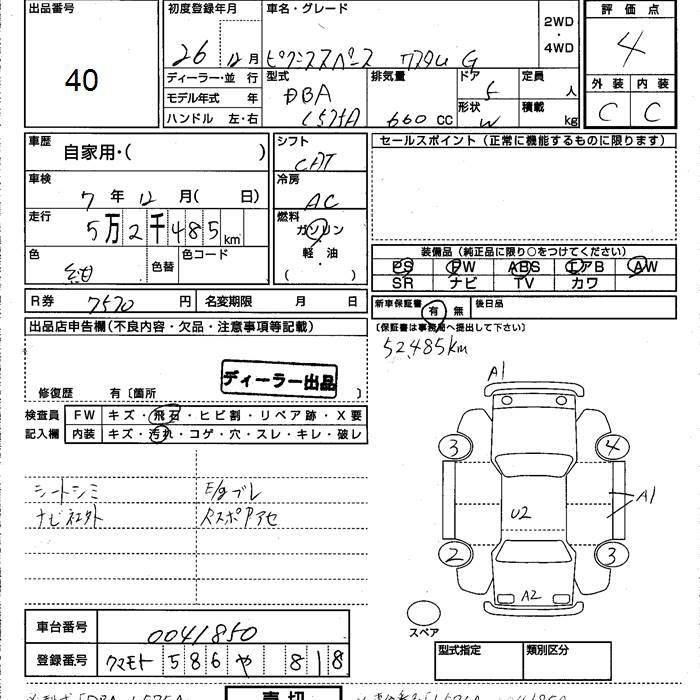 出品番号
40
初度登録年月
26 12月
車名・グレード
2WD
・
4WD
評価点
4
外装 内装
C C
ディーラー・並行
モデル年式 年
ハンドル 左・右
型式
DBA
L575A
排気量
660 cc
ドア
5
形状
W
定員
人
積載
kg
車歴
自家用・( )
車検
7年12月( 日)
走行
5万2千485km
色
色替
色コード
シフト
CAT
冷房
AC
燃料
ガソリン
・
軽・油
( )
セールスポイント (正常に機能するものに限ります)
装備品 (純正品に限り○をつけてください)
PS PW ABS エアB AW
SR ナビ TV カワ
R券 7570円 名変期限 月 日
新車保証書 有 無 後日品
(保証書は事務局へ提出して下さい)
52,485km
出品店申告欄(不良内容・欠品・注意事項等記載)
ディーラー出品
修復歴 有〔箇所 〕
検査員 FW キズ・飛石・ヒビ割・リペア跡・X要
記入欄 内装 キズ・汚れ・コゲ・穴・スレ・キレ・破レ
シートシミ
E/gブレ
A1
3 4
A1
U2
2 3
A2
スペア
車台番号 0041850
登録番号 クマモト 586 や 818
型式指定 類別区分
売切